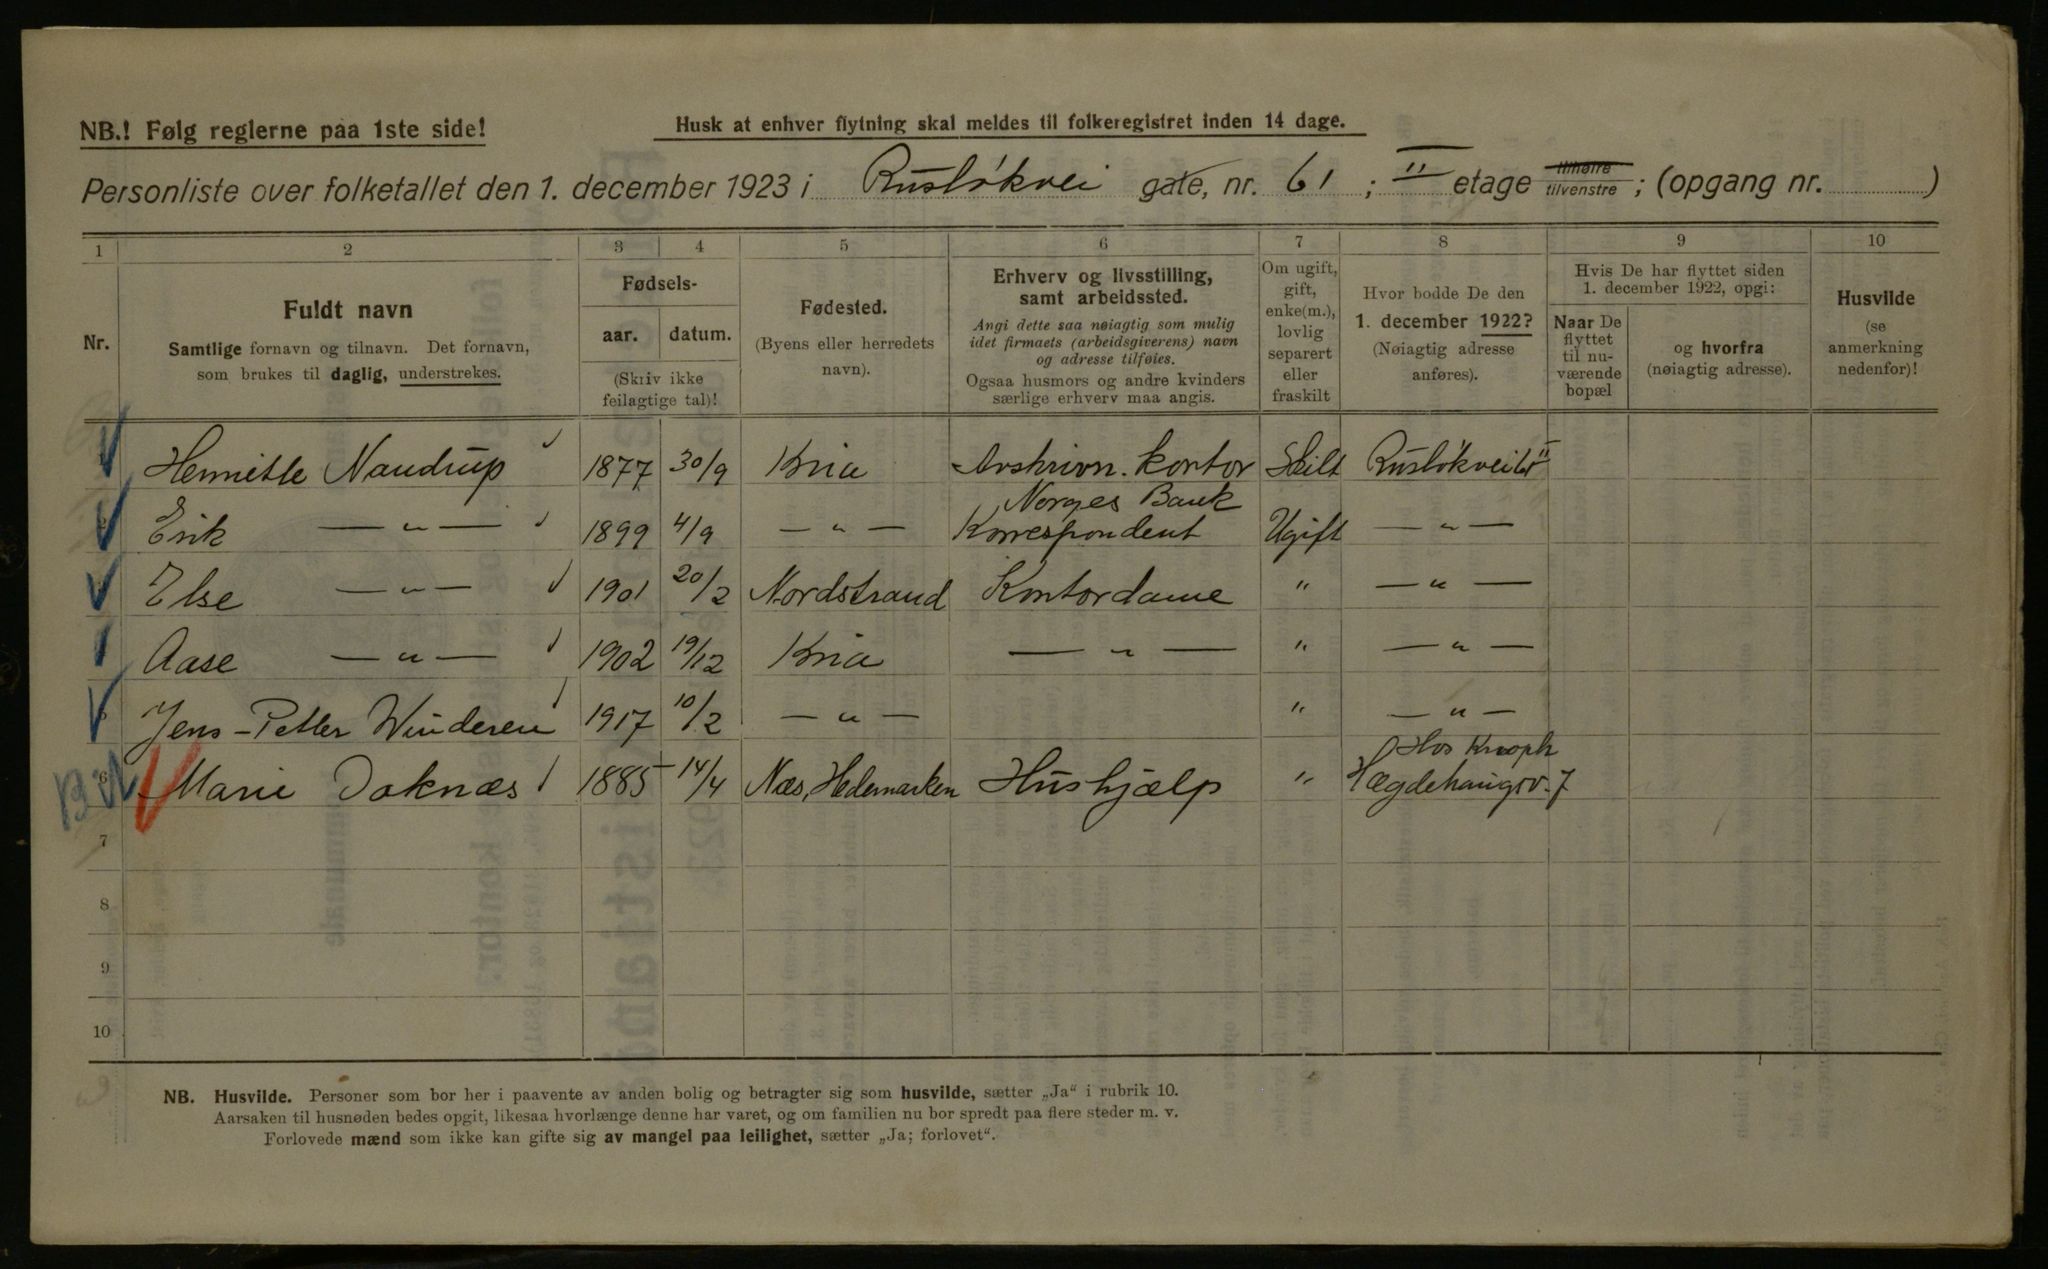 NB.! Følg reglerne paa 1ste side!
Husk at enhver flytning skal meldes til folkeregistret inden 14 dage.
Personliste over folketallet den 1. december 1923 i Rusløkvei gate, nr. 61 ; II etage tilhøire tilvenstre ; (opgang nr. )
1 2 3 4 5 6 7 8 9 10
Nr.
Fuldt navn
Samtlige fornavn og tilnavn. Det fornavn,
som brukes til daglig, understrekes.
Fødsels-
aar. datum.
(Skriv ikke
feilagtige tal)!
Fødested.
(Byens eller herredets
navn).
Erhverv og livsstilling,
samt arbeidssted.
Angi dette saa nøiagtig som mulig
idet firmaets (arbeidsgiverens) navn
og adresse tilføies.
Ogsaa husmors og andre kvinders
særlige erhverv maa angis.
Om ugift,
gift,
enke(m.),
lovlig
separert
eller
fraskilt
Hvor bodde De den
1. december 1922?
(Nøiagtig adresse
anføres).
Hvis De har flyttet siden
1. december 1922, opgi:
Naar De
flyttet
til nu-
værende
bopæl
og hvorfra
(nøiagtig adresse).
Husvilde
(se
anmerkning
nedenfor)!
Henriette Naudrup 1877 30/9 Kria Avskrivn. kontor Skilt Rusløkvei 61 II
Norges Bank
Erik — " — 1899 4/9 — " — Korrespondent Ugift — " —
Else — " — 1901 20/2 Nordstrand Kontordame " — " —
Aase — " — 1902 19/12 Kria — " — " — " —
Jens-Petter Winderen 1917 10/2 — " — " — " —
Hos Knoph
6 Marie Doknæs 1885 14/4 Næs, Hedemarken Hushjælp " Hægdehaugsv. 7
7
8
9
10
NB. Husvilde. Personer som bor her i paavente av anden bolig og betragter sig som husvilde, sætter „Ja“ i rubrik 10.
Aarsaken til husnøden bedes opgit, likesaa hvorlænge denne har varet, og om familien nu bor spredt paa flere steder m. v.
Forlovede mænd som ikke kan gifte sig av mangel paa leilighet, sætter „Ja; forlovet“.